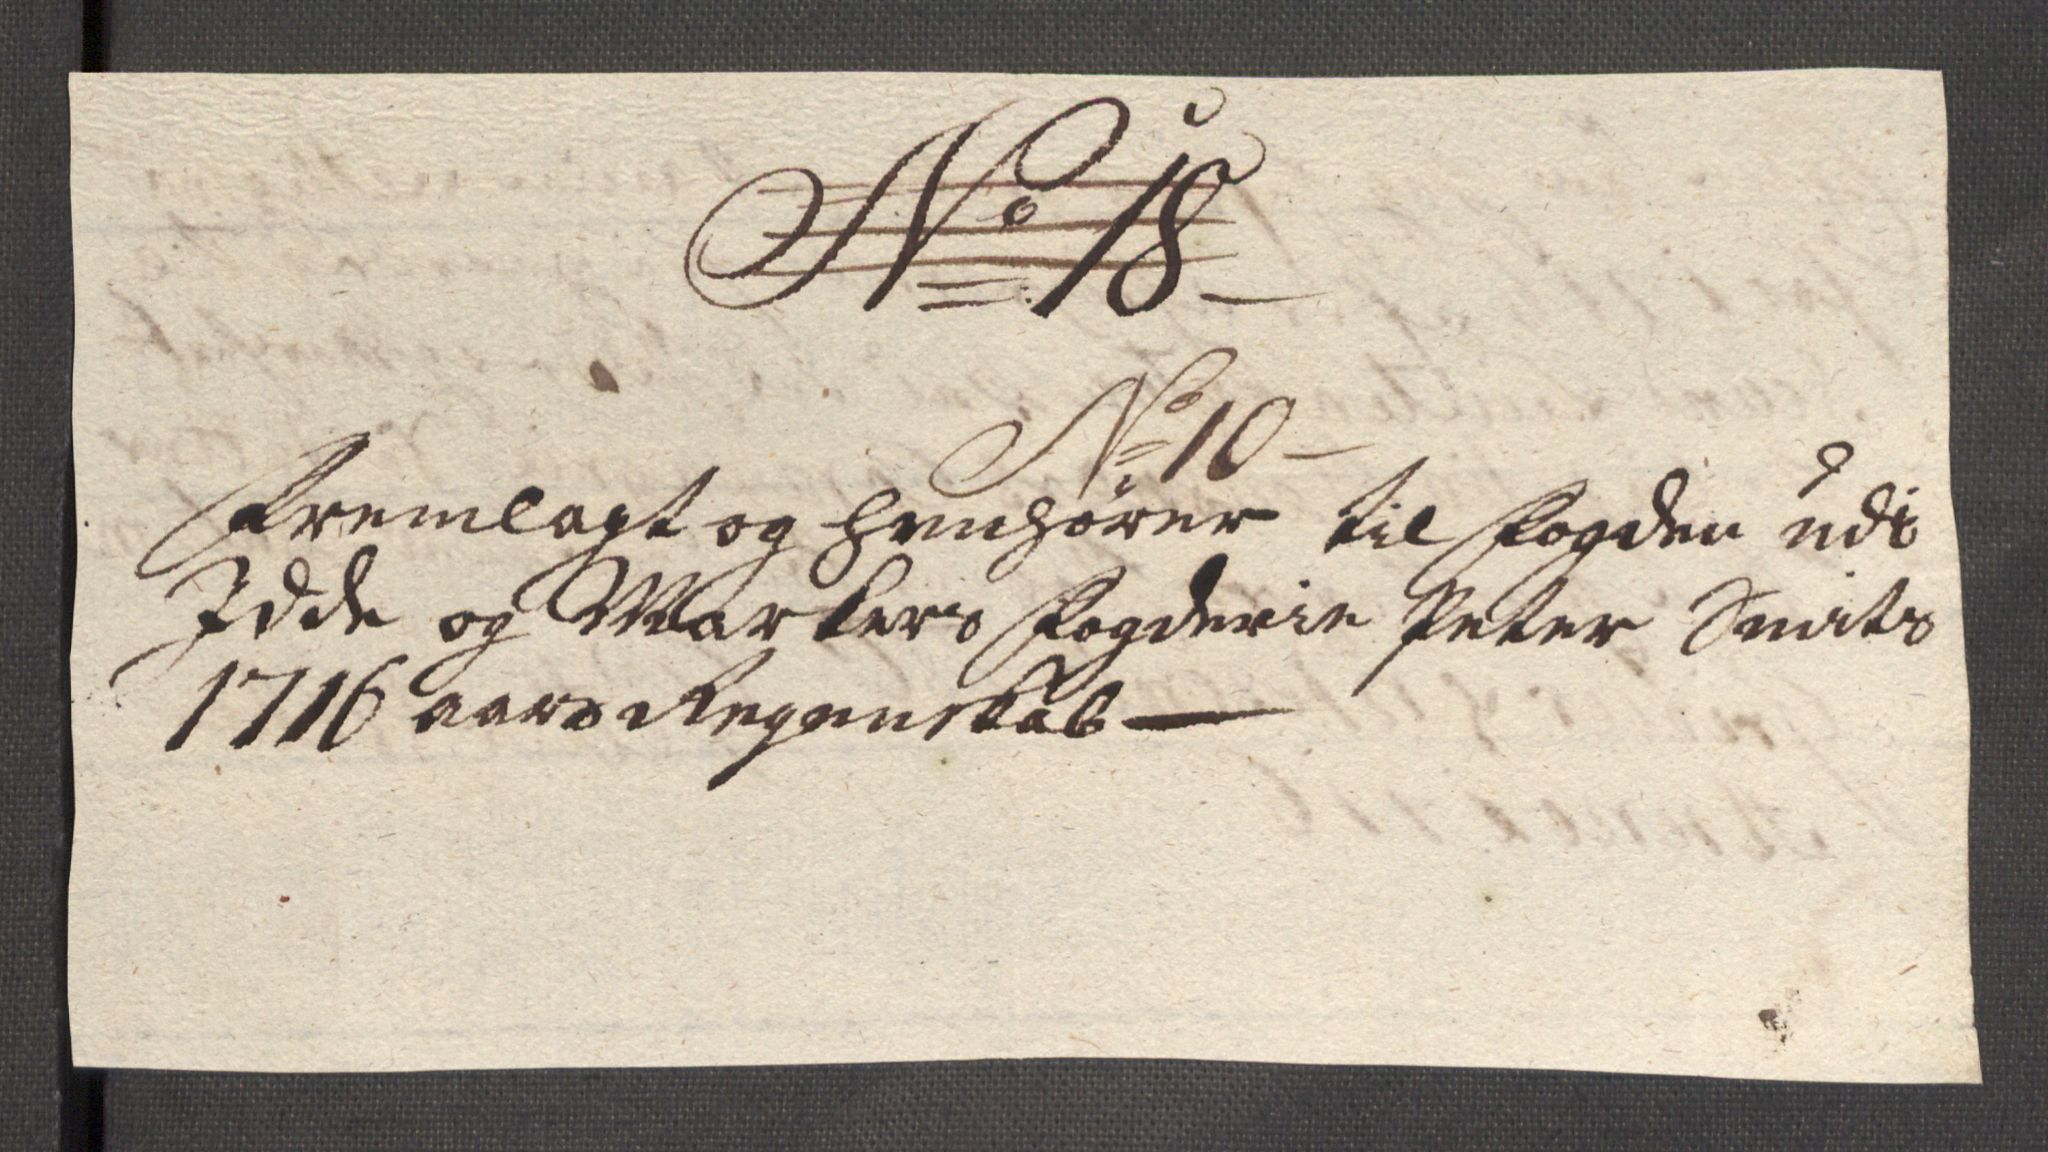 No 18
No 10
Fremlagt og henhører til fogden udi
Idde og Markers fogderie Peter Smits
1716 aars Regenskab